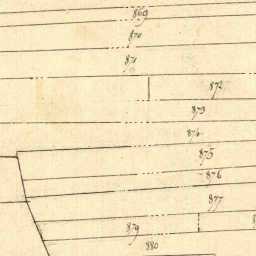 869
870
871
872
873
874
875
876
877
879
880